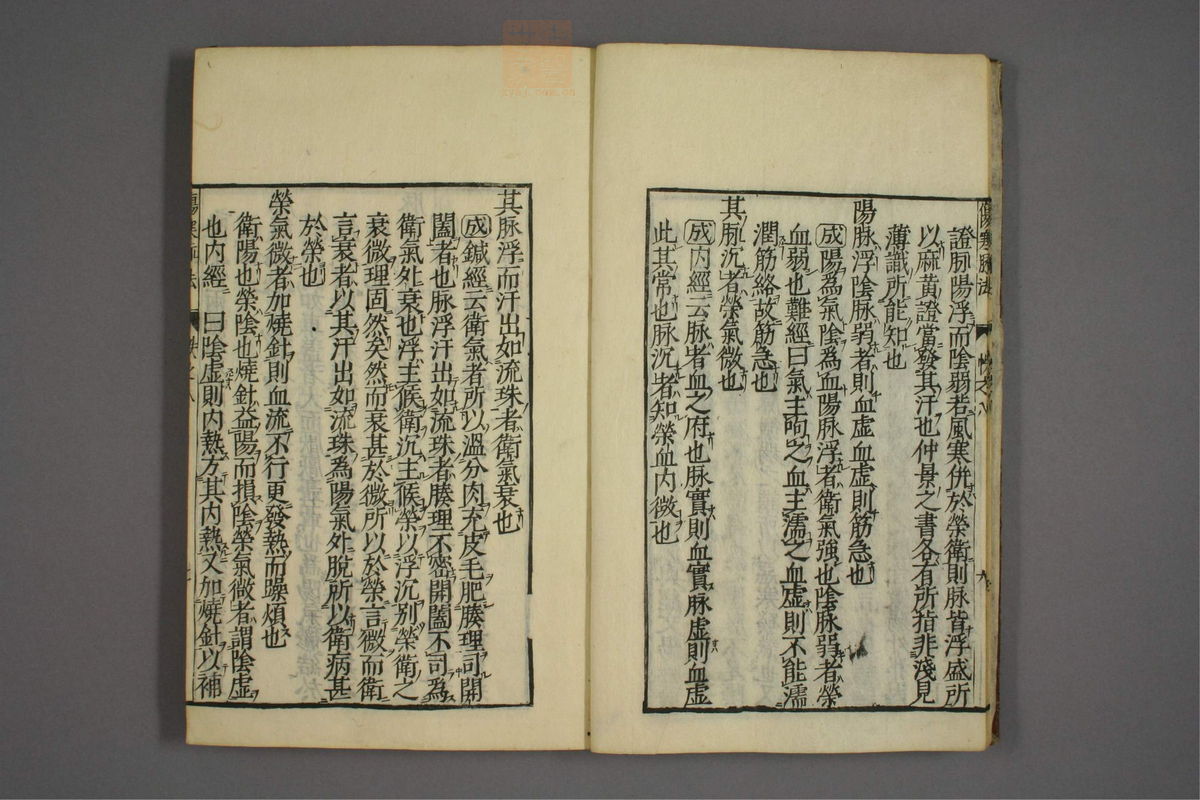 傷寒脉法
卷之八
九
證脉陽浮而陰弱若風寒併於榮衛則脉皆浮盛所
以麻黃證當發其汗也仲景之書各有所指非淺見
薄識所能知也
陽脉浮陰脉弱者則血虛血虛則筋急也
成陽爲氣陰爲血陽脉浮者衛氣強也陰脉弱者榮
血弱也難經曰氣主呴之血主濡之血虛則不能濡
潤筋絡故筋急也
其脉沉者榮氣微也
成内經云脉者血之府也脉實則血實脉虛則血虛
此其常也脉沉者知榮血内微也
其脉浮而汗出如流珠者衛氣衰也
成鍼經云衛氣者所以溫分肉充皮毛肥腠理司開
闔者也脉浮汗出如流珠者腠理不密開闔不司爲
衛氣外衰也浮主候衛沉主候榮以浮沉别榮衛之
衰微理固然矣然而衰甚於微所以於榮言微而衛
言衰者以其汗出如流珠爲陽氣外脫所以衛病甚
於榮也
榮氣微者加燒針則血流不行更發熱而躁煩也
衛陽也榮陰也燒針益陽而損陰榮氣微者謂陰虛
也内經曰陰虛則内熱方其内熱又加燒針以補